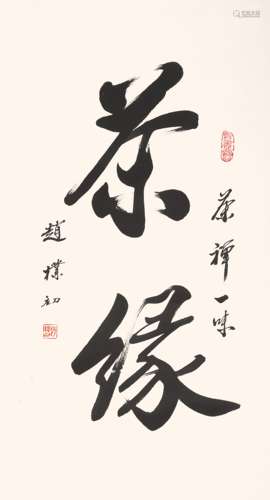 茶禅一味
茶缘
趙樸初